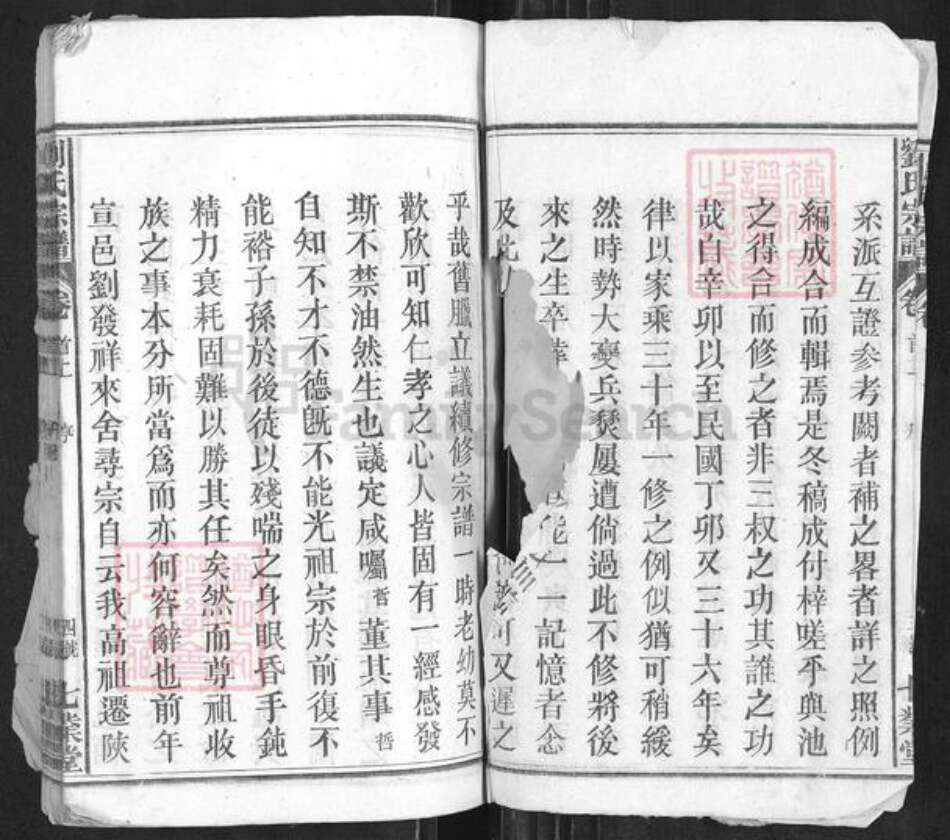 系派互證參考闕者補之畧者詳之照例
編成合而輯焉是冬稿成付梓嗟乎與池
之得合而修之者非三权之功其誰之功
哉自辛卯以至民國丁卯又三十六年矣
律以家乘三十年一修之例似猶可稍緩
然時勢大變兵燹屢遭倘過此不修將後
來之生卒 能一一記憶者念
及此 又遲之
乎哉舊臘立議續修宗譜一時老幼莫不
歡欣可知仁孝之心人皆固有一經感發
斯不禁油然生也議定咸囑哲董其事哲
自知不才不德旣不能光祖宗於前復不
能裕子孫於後徒以殘喘之身眼昏手鈍
精力衰耗固難以勝其任矣然而尊祖收
族之事本分所當爲而亦何容辭也前年
宣邑劉發祥來舍尋宗自云我高祖遷陝
劉氏宗譜 卷首上 序 四號 七業堂
FamilySearch